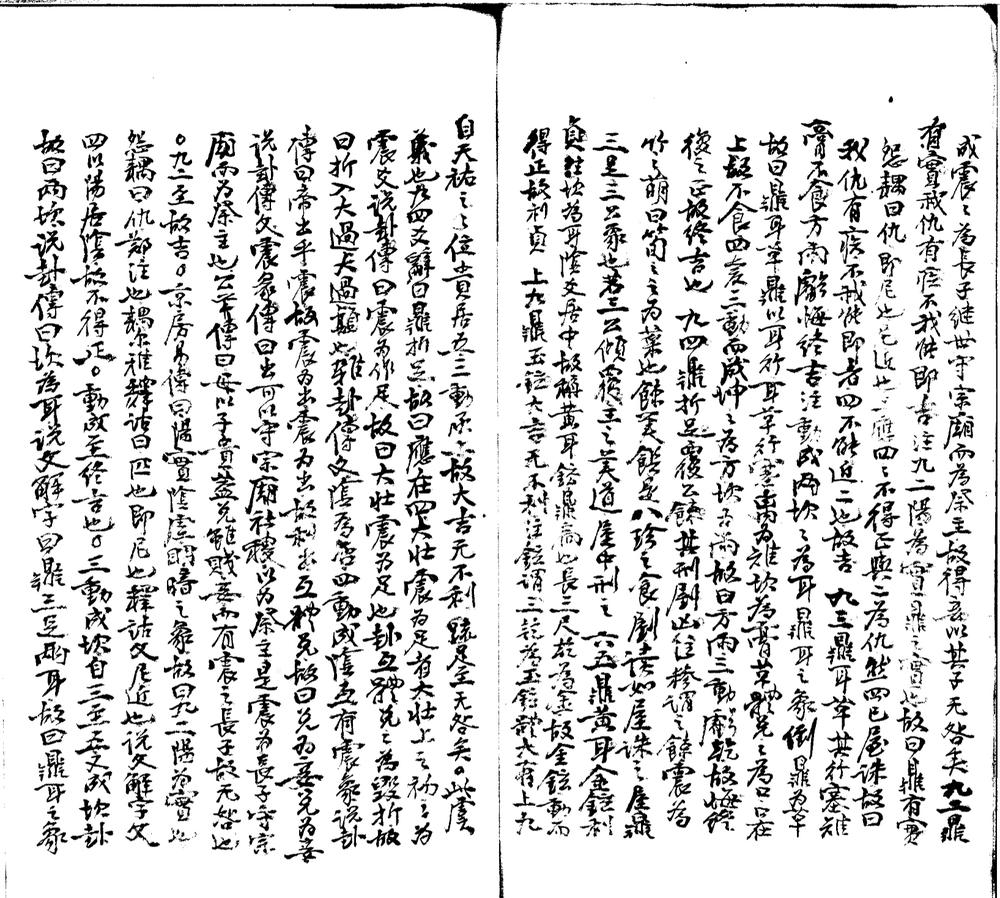 成震〻為長子継世守宗廟而為祭主故得妾以其子无咎矣九二鼎
有實我仇有疾不我能即吉注九二陽為實鼎之實也故曰鼎有實
怨耦曰仇即尼也尼近也二應四〻不得正與二為仇然四已屋誅故曰
我仇有疾不我能即者四不能近二也故吉 九三鼎耳革其行塞雉
膏不食方雨虧悔終吉注動成兩坎〻為耳鼎耳之象倒鼎為革
故曰鼎耳革鼎以耳行耳革行塞离為雉坎為膏革體兌〻為口在
上故不食四變三動而成坤〻為方坎為雨故曰方雨三動虧乾故悔終
復之正故終吉也 九四鼎折足覆公餗其刑剭凶注糝謂之餗震為
竹〻萌曰筍〻之為菜也餗美饌是八珍之食剭讀如屋誅之屋鼎
三足三公象也若三公傾覆王之美道屋中刑之 六五鼎黃耳金鉉利
貞注坎為耳陰爻居中故稱黃耳鉉鼎扃也長三尺乾為金故金鉉動而
得正故利貞 上九鼎玉鉉大吉无不利注鉉謂三乾為玉鉉體大有上九
自天祐之〻位貴居五三動承六故大吉无不利疏是全无咎矣。此虞
義也九四爻辭曰鼎折足故曰應在四大壯震為足者大壯上之初〻為
震爻説卦傳曰震為作足故曰大壯震為足也卦互體兌〻為毀折故
曰折入大過大過顛也雜卦傳文陰為否四動成陰互有震象説卦
傳曰帝出乎震故震為出震為出故利出互體兌故曰兌為妾兌為妾
説卦傳文震彖傳曰出可以守宗廟社稷以為祭主是震為長子守宗
廟而為祭主也公羊傳曰母以子貴盖兌雖賤妾而有震之長子故无咎也
。九二至故吉。京房易傳曰陽實陰虛明暗之象故曰九二陽為實也
怨耦曰仇鄭注也耦尔雅釋詁曰匹也即尼也釋詁文尼近也説文解字文
四以陽居陰故不得正。動成至終吉也。三動成坎自三至五又成坎卦
故曰兩坎説卦傳曰坎為耳説文解字曰鼎三足兩耳故曰鼎耳之象